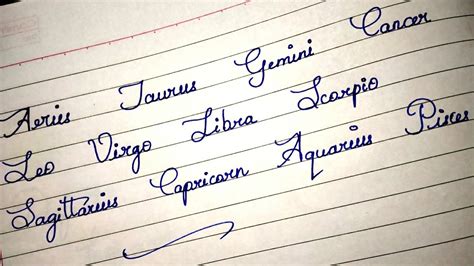 Aerius Taurus Gemini Cancer
Leo Virgo Libra Scorpio
Sagittarius Capricorn Aquarius Pisces